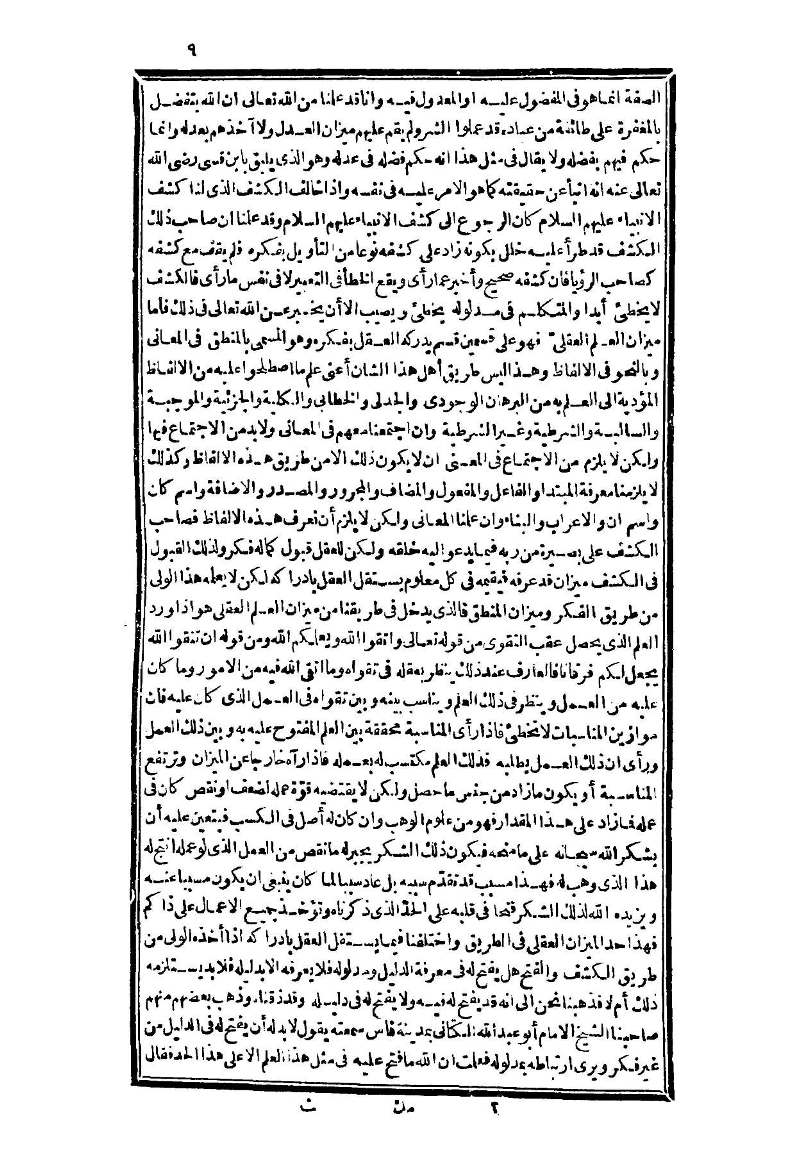 ٩
الصفة انما هو فى المفضول عليه او المعدول فيه وانا قد علمنا من الله تعالى ان الله يتفضل
بالمغفرة على طائفة من عباده قد عملوا الشر ولم يقم عليهم ميزان العدل ولا آخذهم بعدله وانما
حكم فيهم بفضله ولا يقال فى مثل هذا انه حكم فضله فى عدله وهو الذى يليق بابن قسى رضى الله
تعالى عنه انه انبأ عن حقيقته كما هو الامر عليه فى نفسه واذا خالف الكشف الذى لنا كشف
الانبياء عليهم السلام كان الرجوع الى كشف الانبياء عليهم السلام وقد علمنا ان صاحب ذلك
الكشف قد طرأ عليه خلل بكونه زاد على كشفه نوعا من التأويل بفكره فلم يقف مع كشفه
كصاحب الرؤيا فان كشفه صحيح وأخبر عما رأى ويقع الخطأ فى التعبير لا فى نفس ما رأى فالكشف
لا يخطئ أبدا والمتكلم فى مدلوله يخطئ ويصيب الا أن يخبر عن الله تعالى فى ذلك فأما
ميزان العلم العقلى فهو على قسمين قسم يدركه العقل بفكره وهو المسمى بالمنطق فى المعانى
وبالنحو فى الالفاظ وهذا ليس طريق أهل هذا الشان أعنى علم ما اصطلحوا عليه من الالفاظ
المؤدية الى العلم به من البرهان الوجودى والجدلى والخطابى والكلية والجزئية والموجبة
والسالبة والشرطية وغير الشرطية وان اجتمعنا معهم فى المعانى ولا بد من الاجتماع فيها
ولكن لا يلزم من الاجتماع فى المعنى ان لا يكون ذلك الا من طريق هذه الالفاظ وكذلك
لا يلزمنا معرفة المبتدا والفاعل والمفعول والمضاف والمجرور والمصدر والاضافة واسم كان
واسم ان والاعراب والبناء وان علمنا المعانى ولكن لا يلزم أن نعرف هذه الالفاظ فصاحب
الكشف على بصيرة من ربه فيما يدعو اليه خلقه ولكن للعقل قبول كماله فكر ولذلك القبول
فى الكشف ميزان قد عرفه فيقيمه فى كل معلوم يستقل العقل بادراكه لكن لا يعلمه هذا الولى
من طريق الفكر وميزان المنطق فالذى يدخل فى طريقنا من ميزان العلم العقلى هو اذا ورد
العلم الذى يحصل عقب التقوى من قوله تعالى واتقوا الله ويعلمكم الله ومن قوله ان تتقوا الله
يجعل لكم فرقانا فالعارف عند ذلك ينظر بعقله فى تقواه وما اتقى الله فيه من الامور وما كان
عليه من العمل وينظر فى ذلك العلم ويناسب بينه وبين تقواه فى العمل الذى كان عليه فان
موازين المناسبات لا تخطئ فاذا رأى المناسبة محققة بين العلم المفتوح عليه به وبين ذلك العمل
ورأى ان ذلك العمل يطلبه فذلك العلم مكتسب له بعمله فاذا رآه خارجا عن الميزان وترتفع
المناسبة أو يكون ما زاد من جنس ما حصل ولكن لا يقتضيه قوة عمله لضعف او نقص كان فى
عمله فما زاد على هذا المقدار فهو من علوم الوهب وان كان له أصل فى الكسب فيتعين عليه أن
يشكر الله سبحانه على ما منحه فيكون ذلك الشكر يجبر له ما نقص من العمل الذى لو عمله انتج له
هذا الذى وهب له فهذا مسبب قد تقدم سببه بل عاد سببا لما كان ينبغى ان يكون مسببا عنه
ويزيده الله لذلك الشكر فتحا فى قلبه على الحد الذى ذكرناه وتؤخذ جميع الاعمال على ذا كم
فهذا حد الميزان العقلى فى الطريق واختلفنا فيما يستقل العقل بادراكه اذا أخذه الولى من
طريق الكشف والفتح هل يفتح له فى معرفة الدليل ومدلوله فلا يعرفه الا بدليله فلا بد يستلزمه
ذلك أم لا فذهبنا نحن الى انه قد يفتح له فيه ولا يفتح له فى دليله وقد ذقناه وذهب بعضهم منهم
صاحبنا الشيخ الامام أبو عبد الله الكتانى بمدينة فاس سمعته يقول لا بد له أن يفتح له فى الدليل من
غير فكر ويرى ارتباطه بمدلوله فعلمت ان الله ما فتح عليه فى مثل هذا العلم الا على هذا الحد فقال
٢ مك ث